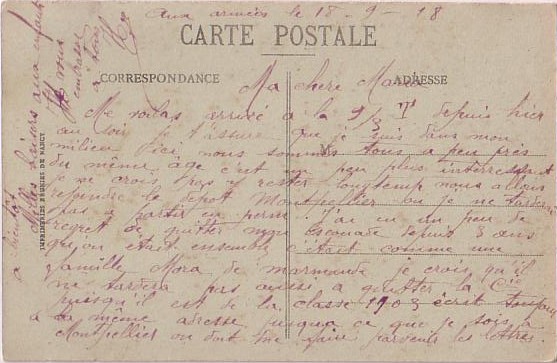 aux armées le 18-9-18
CARTE POSTALE
CORRESPONDANCE
ADRESSE
Ma chere Maria
Me voilas arrivé a la 9/3 T depuis hier
au soir je t'assure que je suis dans mon
milieu ici nous sommes tous a peu près
du même âge c'est un peu plus interressant
je ne crois pas y rester longtemp nous allons
rejoindre le depot Montpellier ou je ne tarderai
pas a partir en perm J'ai eu un peu de
regret de quitter mon escouade depuis 3 ans
qu'on etait ensemble c'était comme une
famille Mora de marmande je crois qu'il
ne tardera pas aussi a quitter la Cie
puisqu'il est de la classe 1903 écrit toujours
a la même adresse jusqua ce que je sois a
Montpellier on doit me faire parvenir les lettres
a bientôt
milles baisers aux enfants
vous
embrasse
a tous
IMPRIMERIES REUNIES DE NANCY